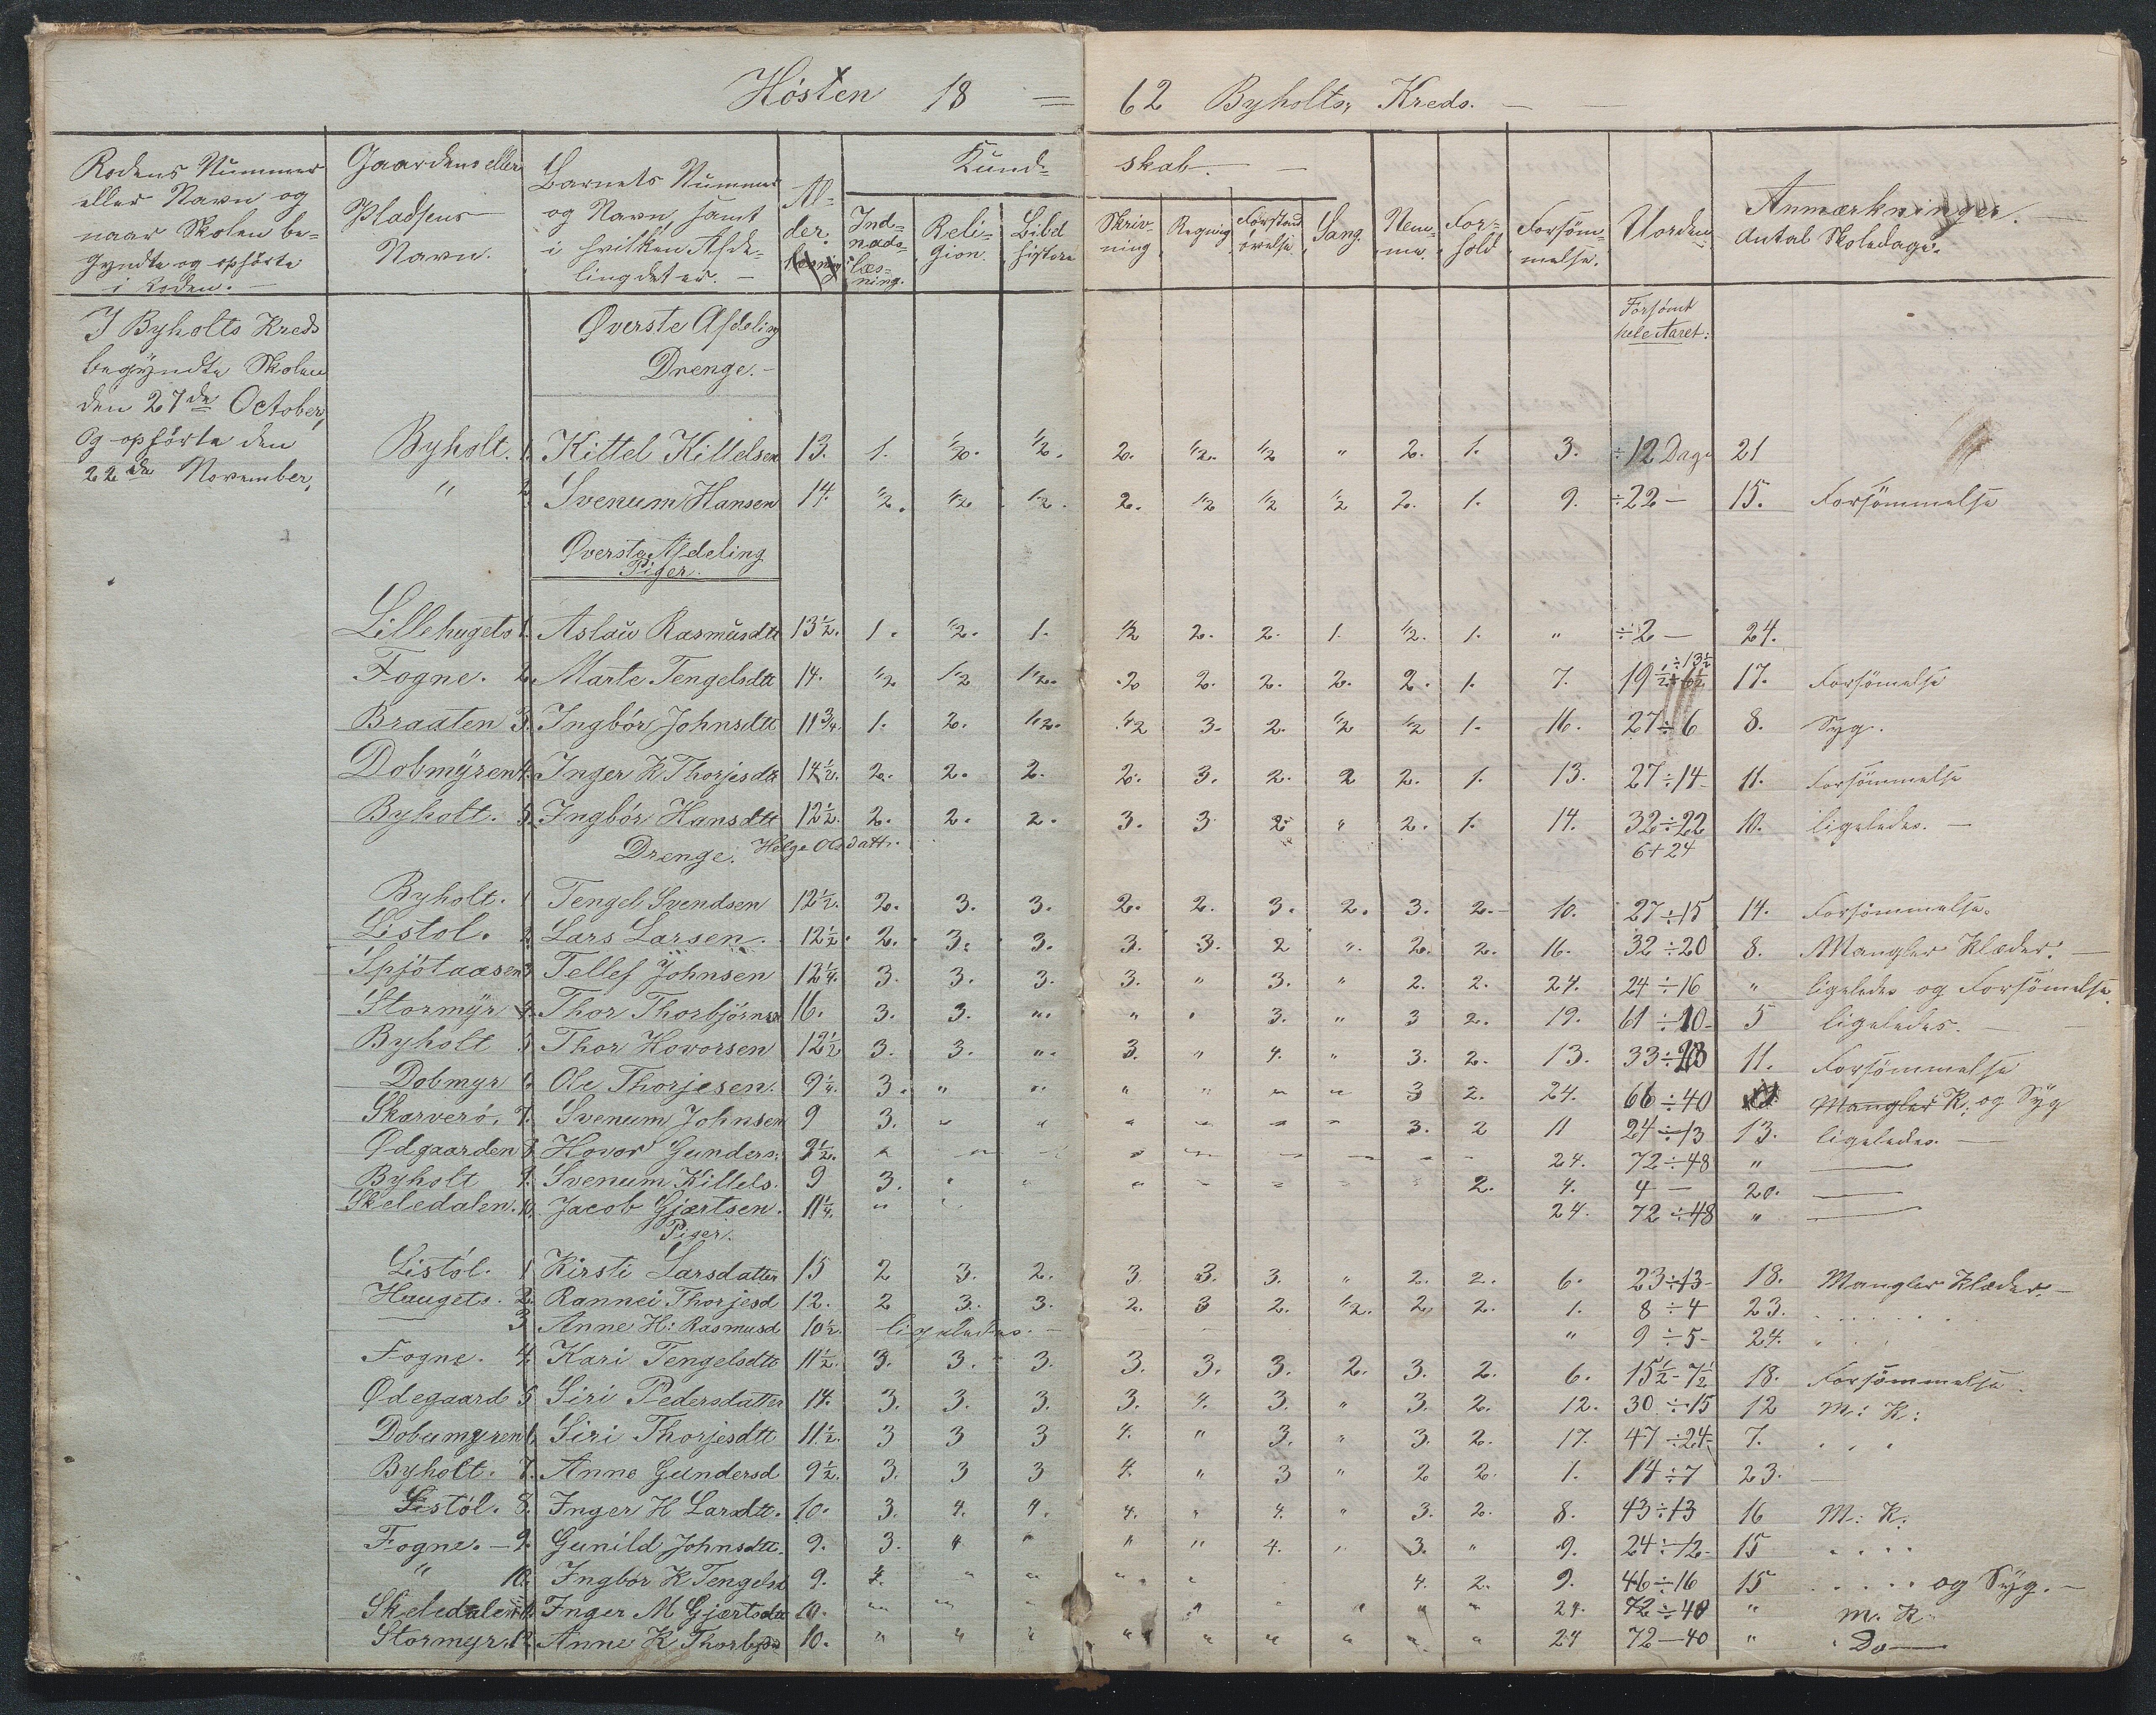 Hösten 18 = 62 Byholts, Kreds. —
Rodens Nummer eller Navn og naar Skolen be=gyndte og ophörte i Roden. — | Gaardens eller Pladsens Navn. | Barnets Nummer og Navn, samt i hvilken Afde=ling det er. — | Al=der. | Kund=skab. — | Nem=me. | For=hold | Forsöm=melse. | Uorden | Anmærkninger. Antal Skoledage.
Ind=nads=læs=ning. | Reli=gion. | Bibel historie | Skriv=ning | Regning | Forstand övelse | Sang.
Forsömt hele Aaret:
I Byholts Kreds
begyndte Skolen
den 27de October,
Og ophörte den
22de November,
Øverste Afdeling
Drenge. —
Byholt. 1. Kittel Kittelsen 13. 1. 1/2. 1/2. 2. 1/2. 1/2 " 2. 1. 3. ÷12 Dage 21
" 2. Svenum Hansen 14. 1/2. 1/2 1/2. 2. 1/2 1/2 1/2 2. 1. 9. ÷22— 15. Forsömmelse
Øverste Afdeling
Piger.
Lillehugets 1. Aslau Rasmusdtt 13½. 1. 1/2. 1. 1/2 2. 2. 1. 1/2. 1. " ÷2— 24.
÷13½
Fogne. 2. Marte Tengelsdtt 14. 1/2 1/2 1/2. 2 2. 2. 2. 2. 1. 7. 19½ 17. Forsömelse
Braaten 3. Ingbör Johnsdtt 11¾. 1. 2. 1/2. 1/2 3. 2. 1/2 1/2 1. 16. 27÷6 8. Syg.
Dobmyren 4. Inger K Thorjesdtt 14½. 2. 2. 2. 2. 3. 2. 2 2. 1. 13. 27÷14 11. Forsömmelse
Byholt. 5. Ingbör Hansdtt 12½. 2. 2. 2. 3. 3 2 " 2. 1. 14. 32÷22 10. ligeledes. —
Drenge. Helge datt. 6+24
Byholt. 1 Tengel Svendsen 12½. 2. 3. 3. 2. 2. 3. 2. 3. 2. 10. 27÷15 14. Forsömmelse.
Listol. 2. Lars Larsen. 12½. 2. 3. 3. 3. 3. 2 " 2. 2. 16. 32÷20 8. Mangler Klæder. —
Spjötaasen 3. Tellef Johnsen 12¼. 3. 3. 3. 3. " 3. " 2. 2. 24. 24÷16 " ligeledes og Forsömelse.
Stormyr 4. Thor Thorbjörnsen 16. 3. 3. " " " 3. " 3 2. 19. 61÷10 5 ligeledes. —
Byholt 5 Thor Hovorsen 12½ 3. 3. " 3. " 4. " 3. 2. 13. 33÷ 11. Forsömmelse
Dobmyr 6. Ole Thorjesen. 9¼. 3. " " " " " " 3 2. 24. 66÷40 Mangler K. og Syg
Skarverö. 7. Svenum Johnsen 9 3. " " " " " " 3. 2 11 24÷13 13. ligeledes. —
Ødgaarden 8 Hovor Gunders: 9½. " " " " " " " " " 24. 72÷48 " —
Byholt 9. Svenum Kittels. 9 3. " " " " " " 2. 4. 4 — 20. —
Skeledalen. 10. Jacob Gjertsen. 11¼. " " 24. 72÷48 " —
Piger.
Listöl. 1 Kirsti Larsdatter 15 2 3. 2. 3. 3. 3. " 2. 2. 6. 23÷13 18. Mangler Klæder. —
Haugets. 2. Rannei Thorjesd 12. 2 3. 3. 2. 3 2. 1/2. 2. 2. 1. 8÷4 23. . . . .
— 3 Anne H: Rasmusd 10½. ligeledes. — " 9÷5- 24. " . .
Fogne. 4. Kari Tengelsdtt 11½. 3. 3. 3. 3. 3. 3. 2. 3. 2. 6. 15½-7½ 18. Forsömmelse.
Ødegaard 5 Siri Pedersdatter 14. 3. 3. 3. 3. 4. 3. " 3. 2. 12. 30÷15 12 M: K:
Dobumyren 6. Siri Thorjesdtt 11½. 3 3 3 4. " 3. " 3. 2. 17. 47÷24- 7. . . .
Byholt. 7. Anne Gundersd 9½. 3. 3 3 4. " 3 " 2 2. 1. 14÷7 23. —
Listöl. 8. Inger H Larsdtt. 10. 3. 4. 4. 4. " 4. " 3. 2. 8. 43÷13 16 M: K:
Fogne. — 9. Gunild Johnsdtt. 9. 3. " " " " 4. " 3. " 9. 24÷12- 15 . . . .
" 10. Ingbör K Tengelsd 9. 4. " " " " 4. 2. 9. 46÷16 15 . . . . og Syg. —
Skeledalen 11. Inger M Gjertsdtt 10. " " " " " " " " 24. 72÷48 " M. K.
Stormyr. 12. Anne K Thorbjd 10. " " " " " " " " " 24 72—40 " Do —